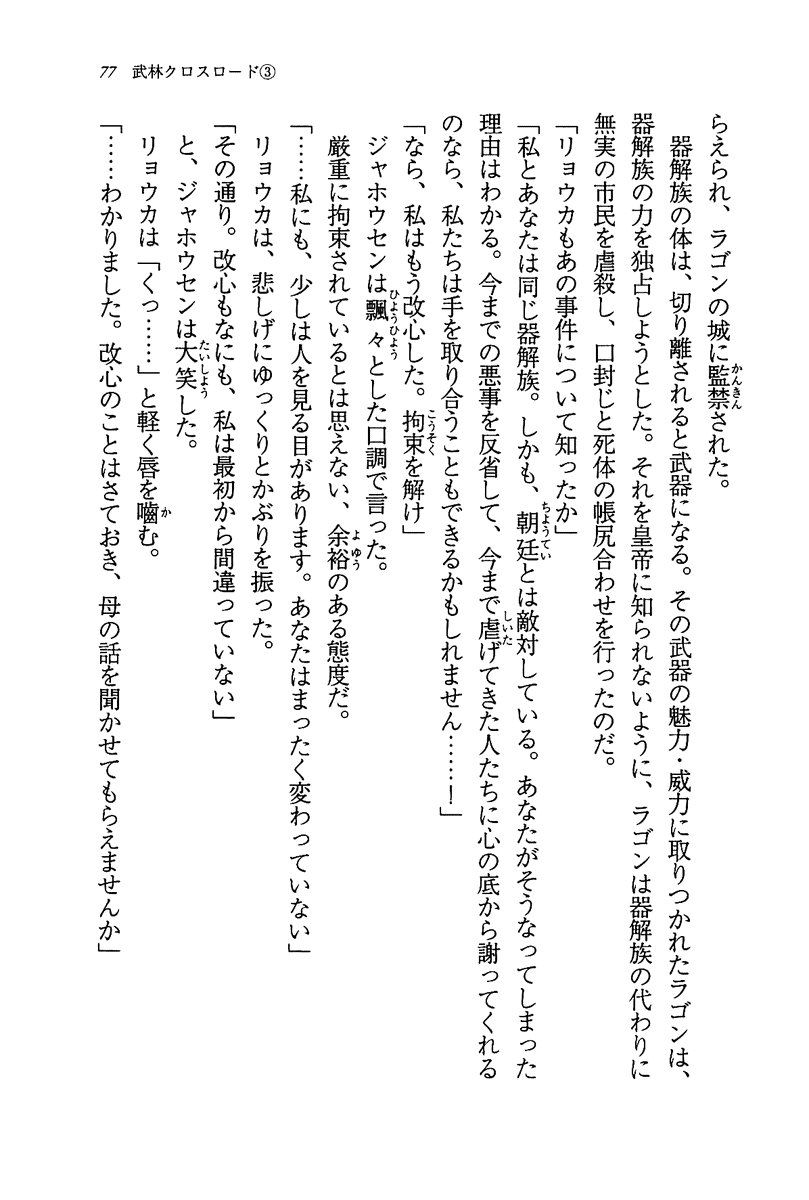 77　武林クロスロード③
らえられ、ラゴンの城に監禁された。
　器解族の体は、切り離されると武器になる。その武器の魅力・威力に取りつかれたラゴンは、
器解族の力を独占しようとした。それを皇帝に知られないように、ラゴンは器解族の代わりに
無実の市民を虐殺し、口封じと死体の帳尻合わせを行ったのだ。
「リョウカもあの事件について知ったか」
「私とあなたは同じ器解族。しかも、朝廷とは敵対している。あなたがそうなってしまった
理由はわかる。今までの悪事を反省して、今まで虐げてきた人たちに心の底から謝ってくれる
のなら、私たちは手を取り合うこともできるかもしれません……！」
「なら、私はもう改心した。拘束を解け」
　ジャホウセンは飄々とした口調で言った。
　厳重に拘束されているとは思えない、余裕のある態度だ。
「……私にも、少しは人を見る目があります。あなたはまったく変わっていない」
　リョウカは、悲しげにゆっくりとかぶりを振った。
「その通り。改心もなにも、私は最初から間違っていない」
　と、ジャホウセンは大笑した。
　リョウカは「くっ……」と軽く唇を嚙む。
「……わかりました。改心のことはさておき、母の話を聞かせてもらえませんか」